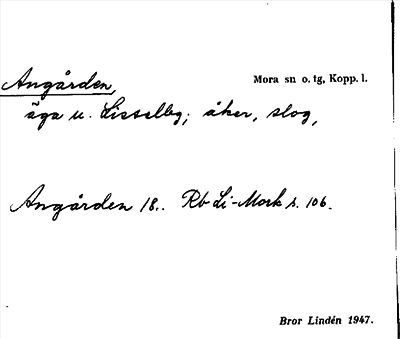 Angården, Mora sn o. tg, Kopp. l.
äga u. Lisselbg; åker, slog,
Angården 18.. Rb Li-Mork s. 106.
Bror Lindén 1947.